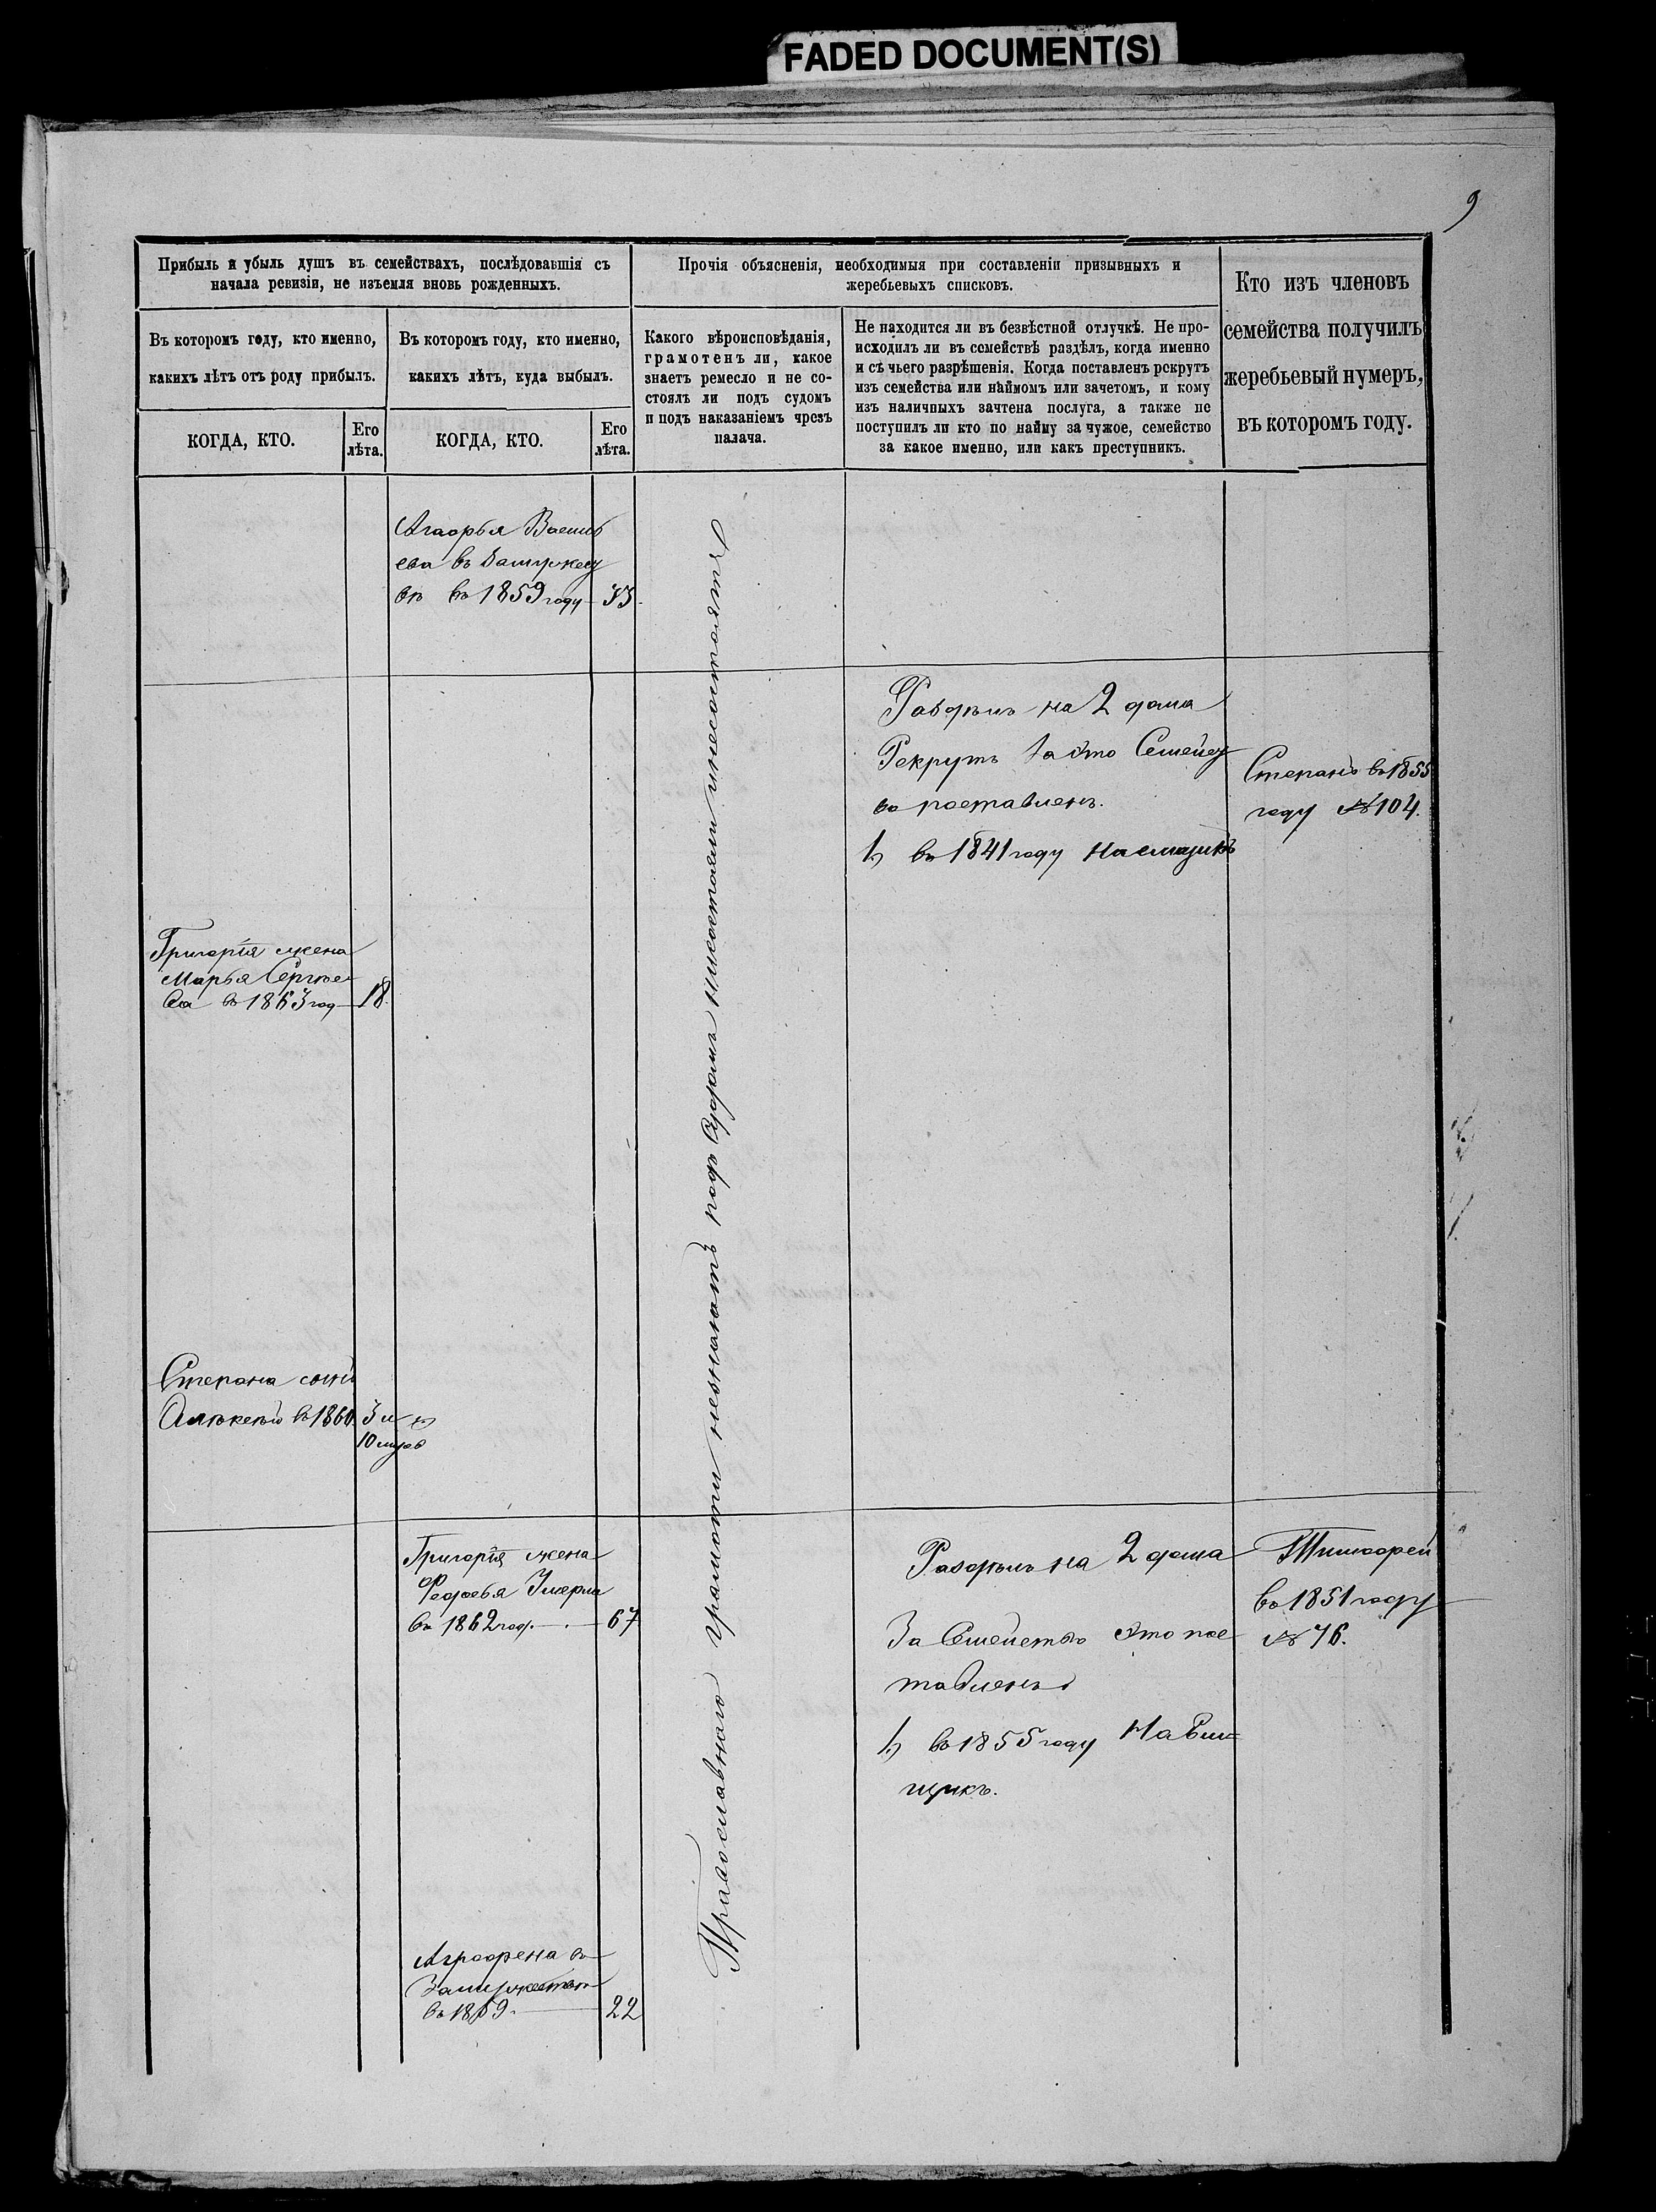 FADED DOCUMENT(S)
9
Прибыль и убыль душъ въ семействахъ, послѣдовавшія съ
начала ревизіи, не изъемля вновь рожденныхъ.
Въ которомъ году, кто именно,
какихъ лѣтъ отъ роду прибылъ.
КОГДА, КТО.
Его
лѣта.
Въ которомъ году, кто именно,
какихъ лѣтъ, куда выбылъ.
КОГДА, КТО.
Его
лѣта.
Прочія объясненія, необходимыя при составленіи призывныхъ и
жеребьевыхъ списковъ.
Какого вѣроисповѣданія,
грамотенъ ли, какое
знаетъ ремесло и не со-
стоялъ ли подъ судомъ
и подъ наказаніемъ чрезъ
палача.
Не находится ли въ безвѣстной отлучкѣ. Не про-
исходилъ ли въ семействѣ раздѣлъ, когда именно
и съ чьего разрѣшенія. Когда поставленъ рекрутъ
изъ семейства или наймомъ или зачетомъ, и кому
изъ наличныхъ зачтена послуга, а также не
поступилъ ли кто по найму за чужое, семейство
за какое именно, или какъ преступникъ.
Кто изъ членовъ
семейства получилъ
жеребьевый нумеръ,
въ которомъ году.
Агафья Василь
ева въ Замужес
въ 1859 году
Православнаго грамоти незнаютъ подъ Судомъ нисостояли инесостоятъ
Раздѣлъ на 2 дома
Рекрутъ За Это Семейст
во поставленъ.
1) въ 1841 году Наемщикъ
Степанъ въ 1855
году № 104.
Григорія жена
Марья Сергѣе
ва въ 1863 год 18
Степана сынъ
Алѣксѣй въ 1860 3 и
10 мцов
Григорія жена
Федосья Умерла
въ 1862 год. 67
Раздѣлъ на 2 дома
За Семейство Это пос
тавленъ
1) въ 1855 году Наем
щикъ.
Тимофей
въ 1851 году
№ 76.
Аграфена въ
Замужество
въ 1859. 22